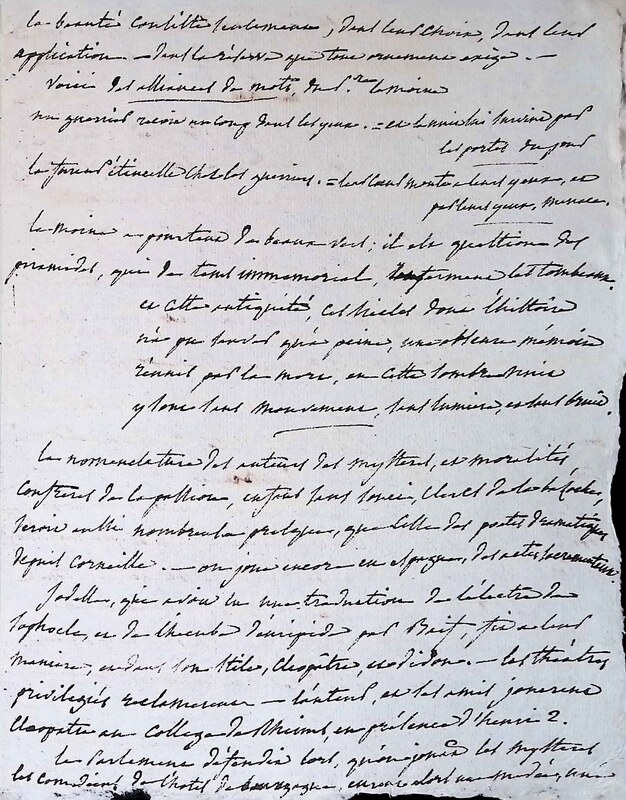 la beauté consiste seulement, dans leur choix, dans leur
application — dans la réserve que tout ornement exige. —
voici des alliances de mots, du p.re lemoine
un guerrier reçoit un coup dans les yeux. = et la vie lui par
les portes du jour
la fureur étincelle chez les guerriers. = leurs monte a leurs yeux, et
par leurs yeux, menace.
le moine a pourtant de beaux vers; il est question des
piramides, qui de tems immemorial, renferment les tombeaux.
et cette antiquité, ces siecles dont l'histoire
n'a pu sauver qu'a peine, une obscure mémoire
réunis par la mort, en cette sombre nuit
y sont sans mouvement, sans lumiere, et sans bruit.
la nomenclature des auteurs des mysteres, et moralités
confreres de la passion, enfans sans souci, clercs de la basoche,
seroit aussi nombreuse presque, que celle des poetes dramatiques
depuis corneille. — on joue encore en espagne, des actes sacramentaux.
Jodelle, que avoit lu une traduction de l'électre de
sophocle, et de l'hecube d'euripide par Baif, fit a leur
maniere, et dans son stile, cleopâtre, et didon. — les théâtres
privilegiés reclamerent — l'auteur, et ses amis jouerent
Cleopâtre au college de Rheims, en présence d'henri 2.
le Parlement défendit lors, qu'on jouat les mysteres
les comédiens de l'hotel de bourgogne,